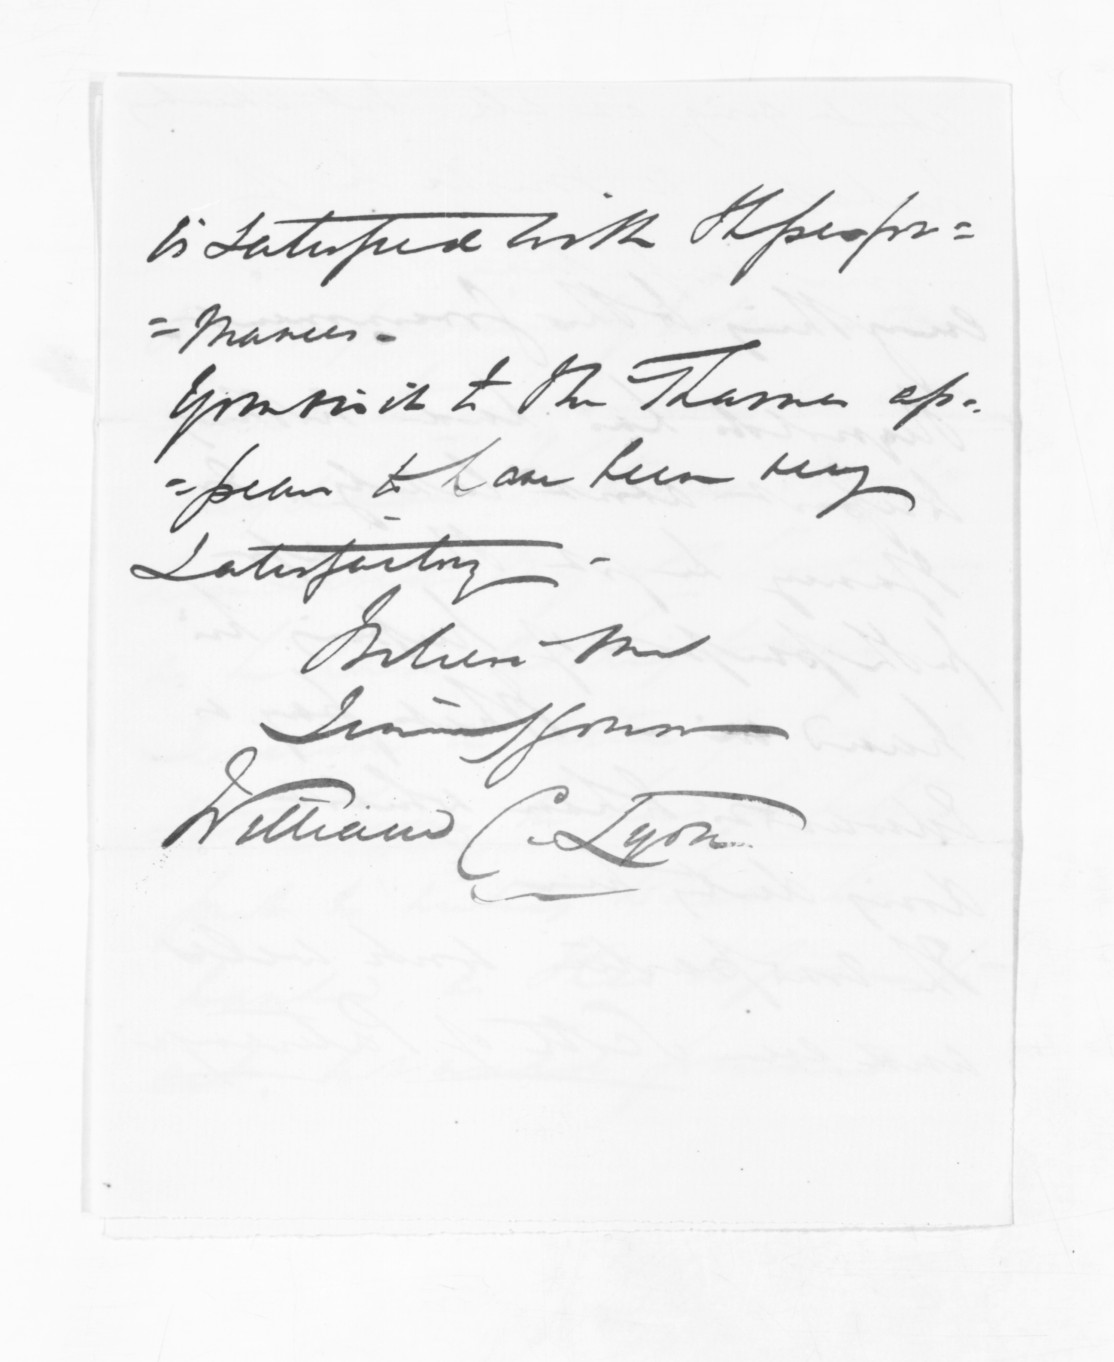 is satisfied with the perfor=
=mances.
Your visit to the Thames ap=
=pears to have been very
Satisfactory -
Believe me
Sincerely Yours
William C. Lyon